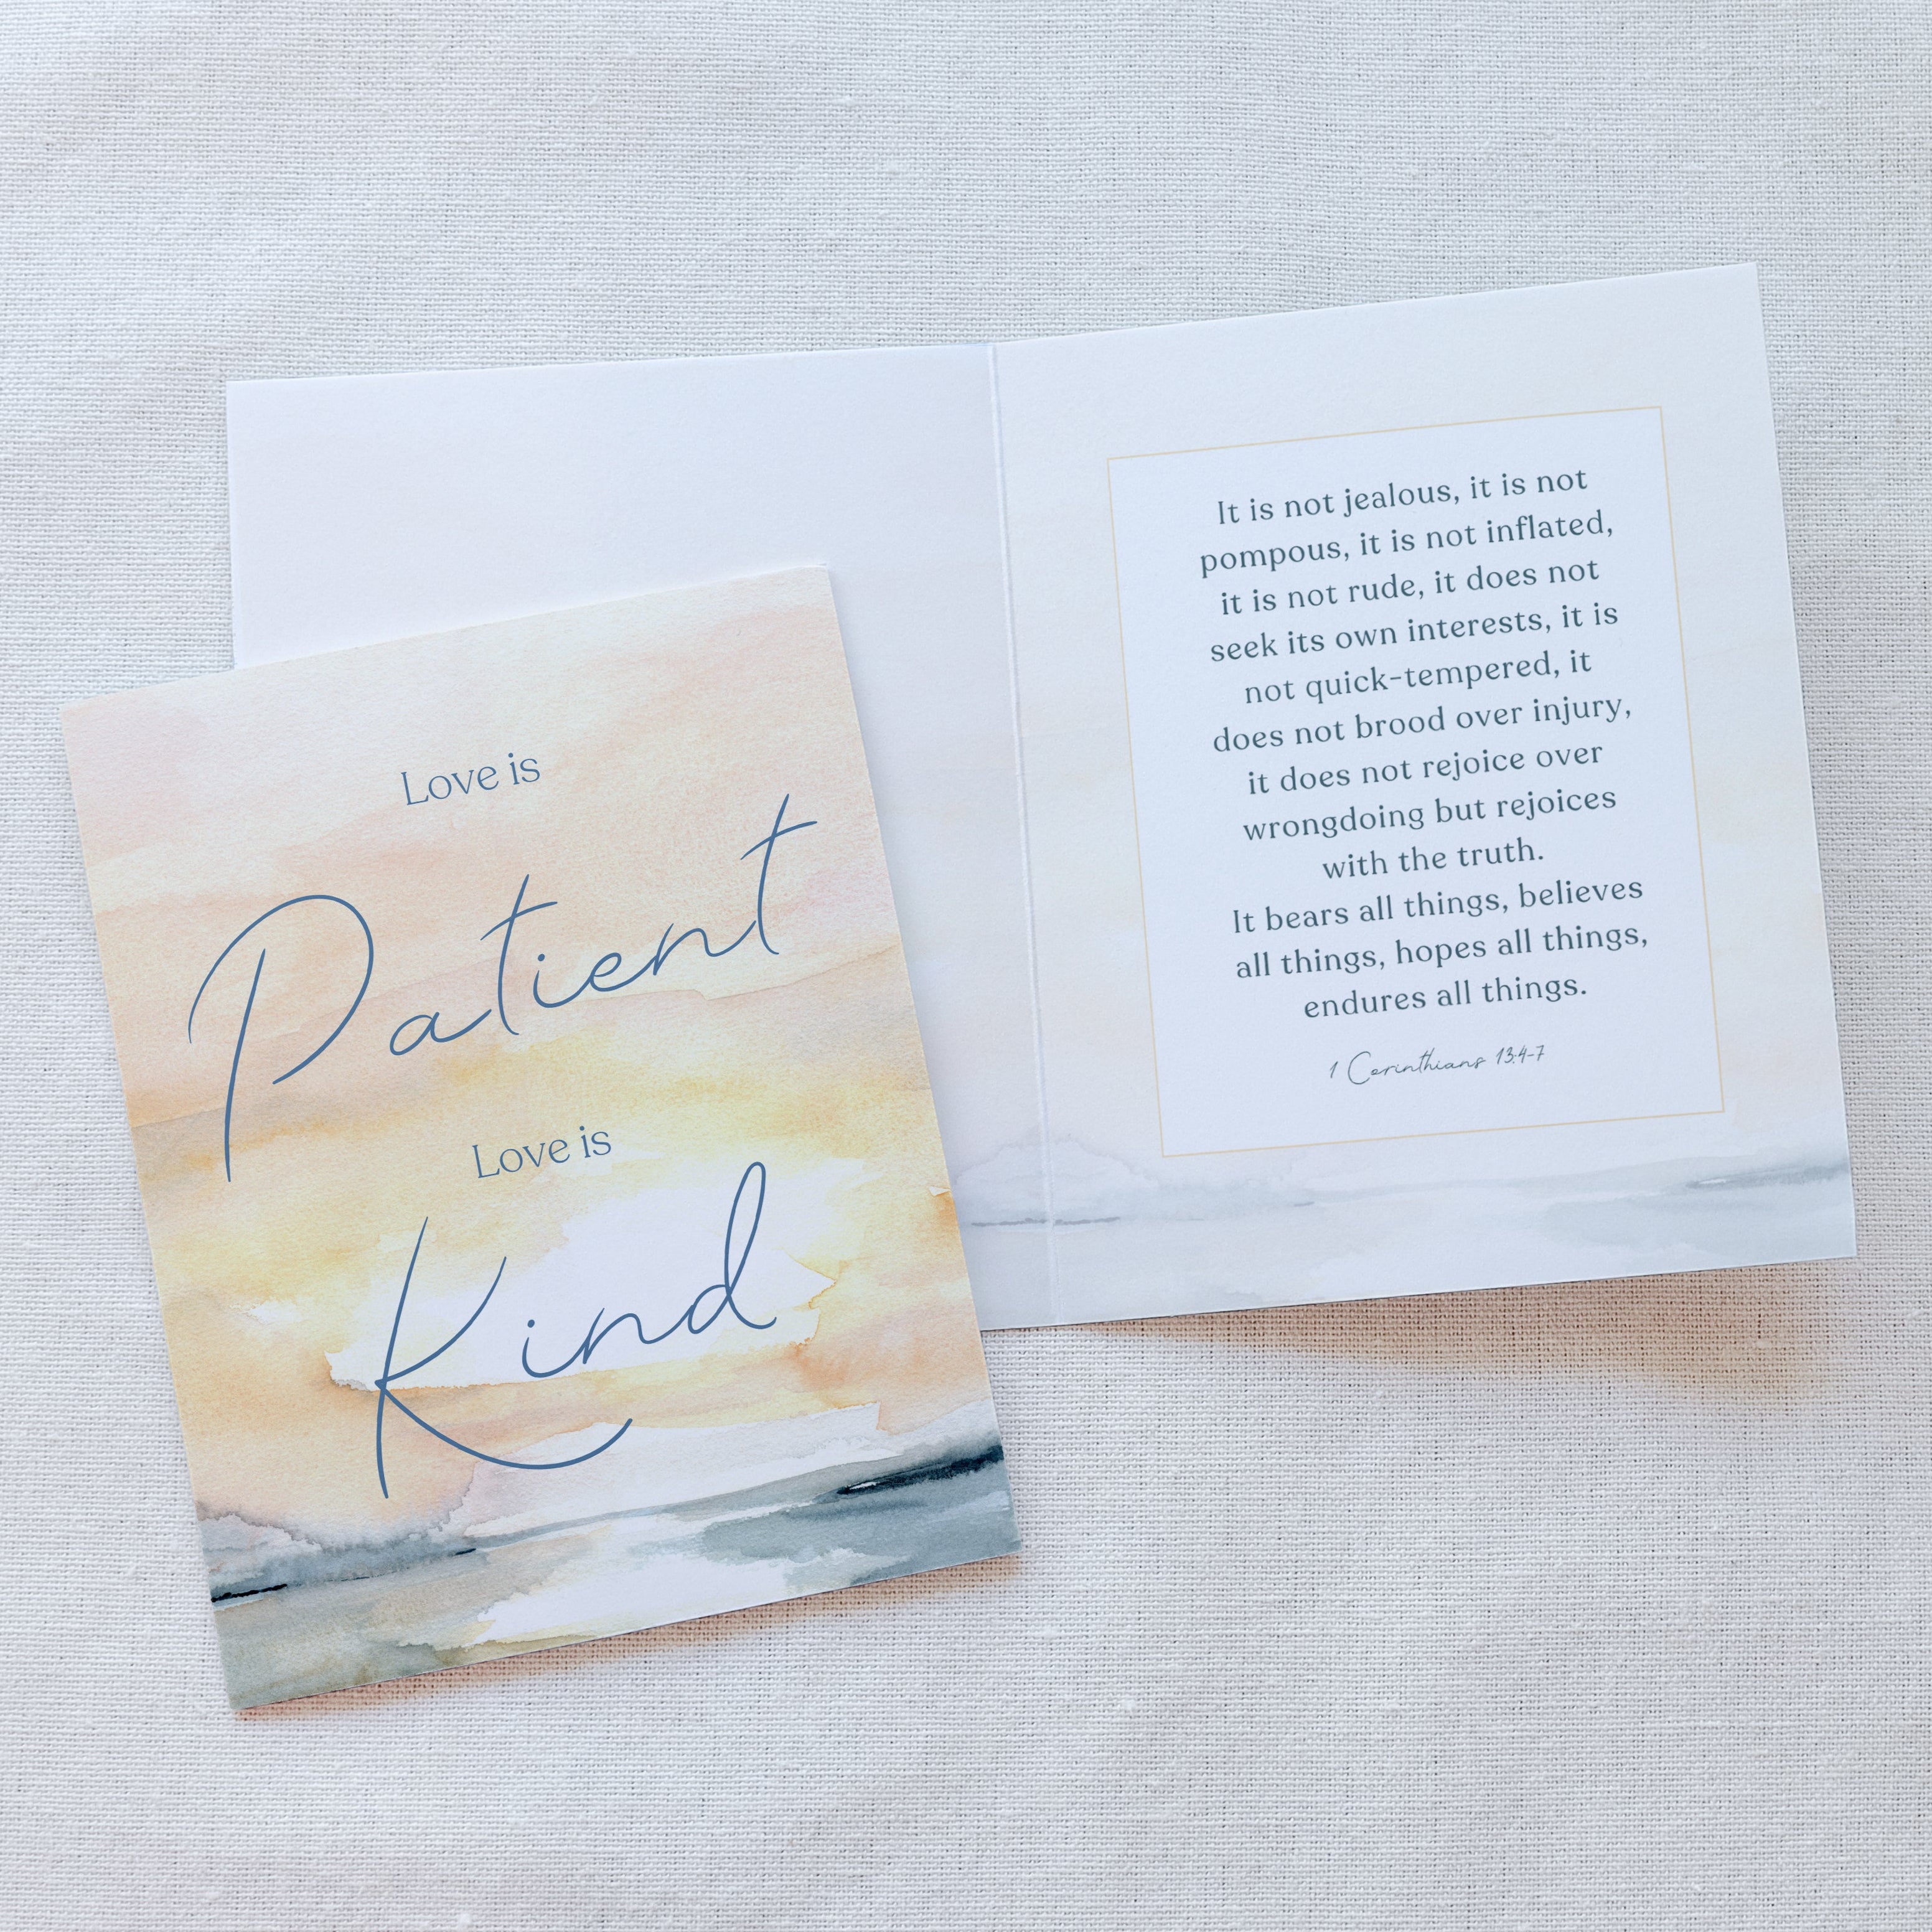 Love is
Patient
Love is
Kind
It is not jealous, it is not
pompous, it is not inflated,
it is not rude, it does not
seek its own interests, it is
not quick-tempered, it
does not brood over injury,
it does not rejoice over
wrongdoing but rejoices
with the truth.
It bears all things, believes
all things, hopes all things,
endures all things.
1 Corinthians 13:4-7